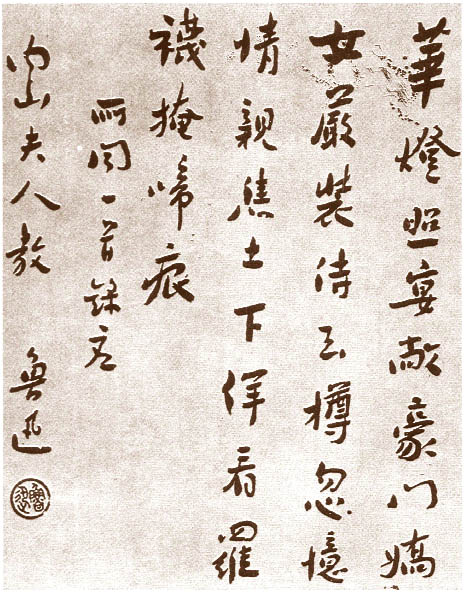 華燈照宴敞豪門嬌
女嚴裝侍玉樽忽憶
情親焦土下佯看羅
襪掩啼痕
所聞一首錄
内山夫人教 魯迅
魯迅